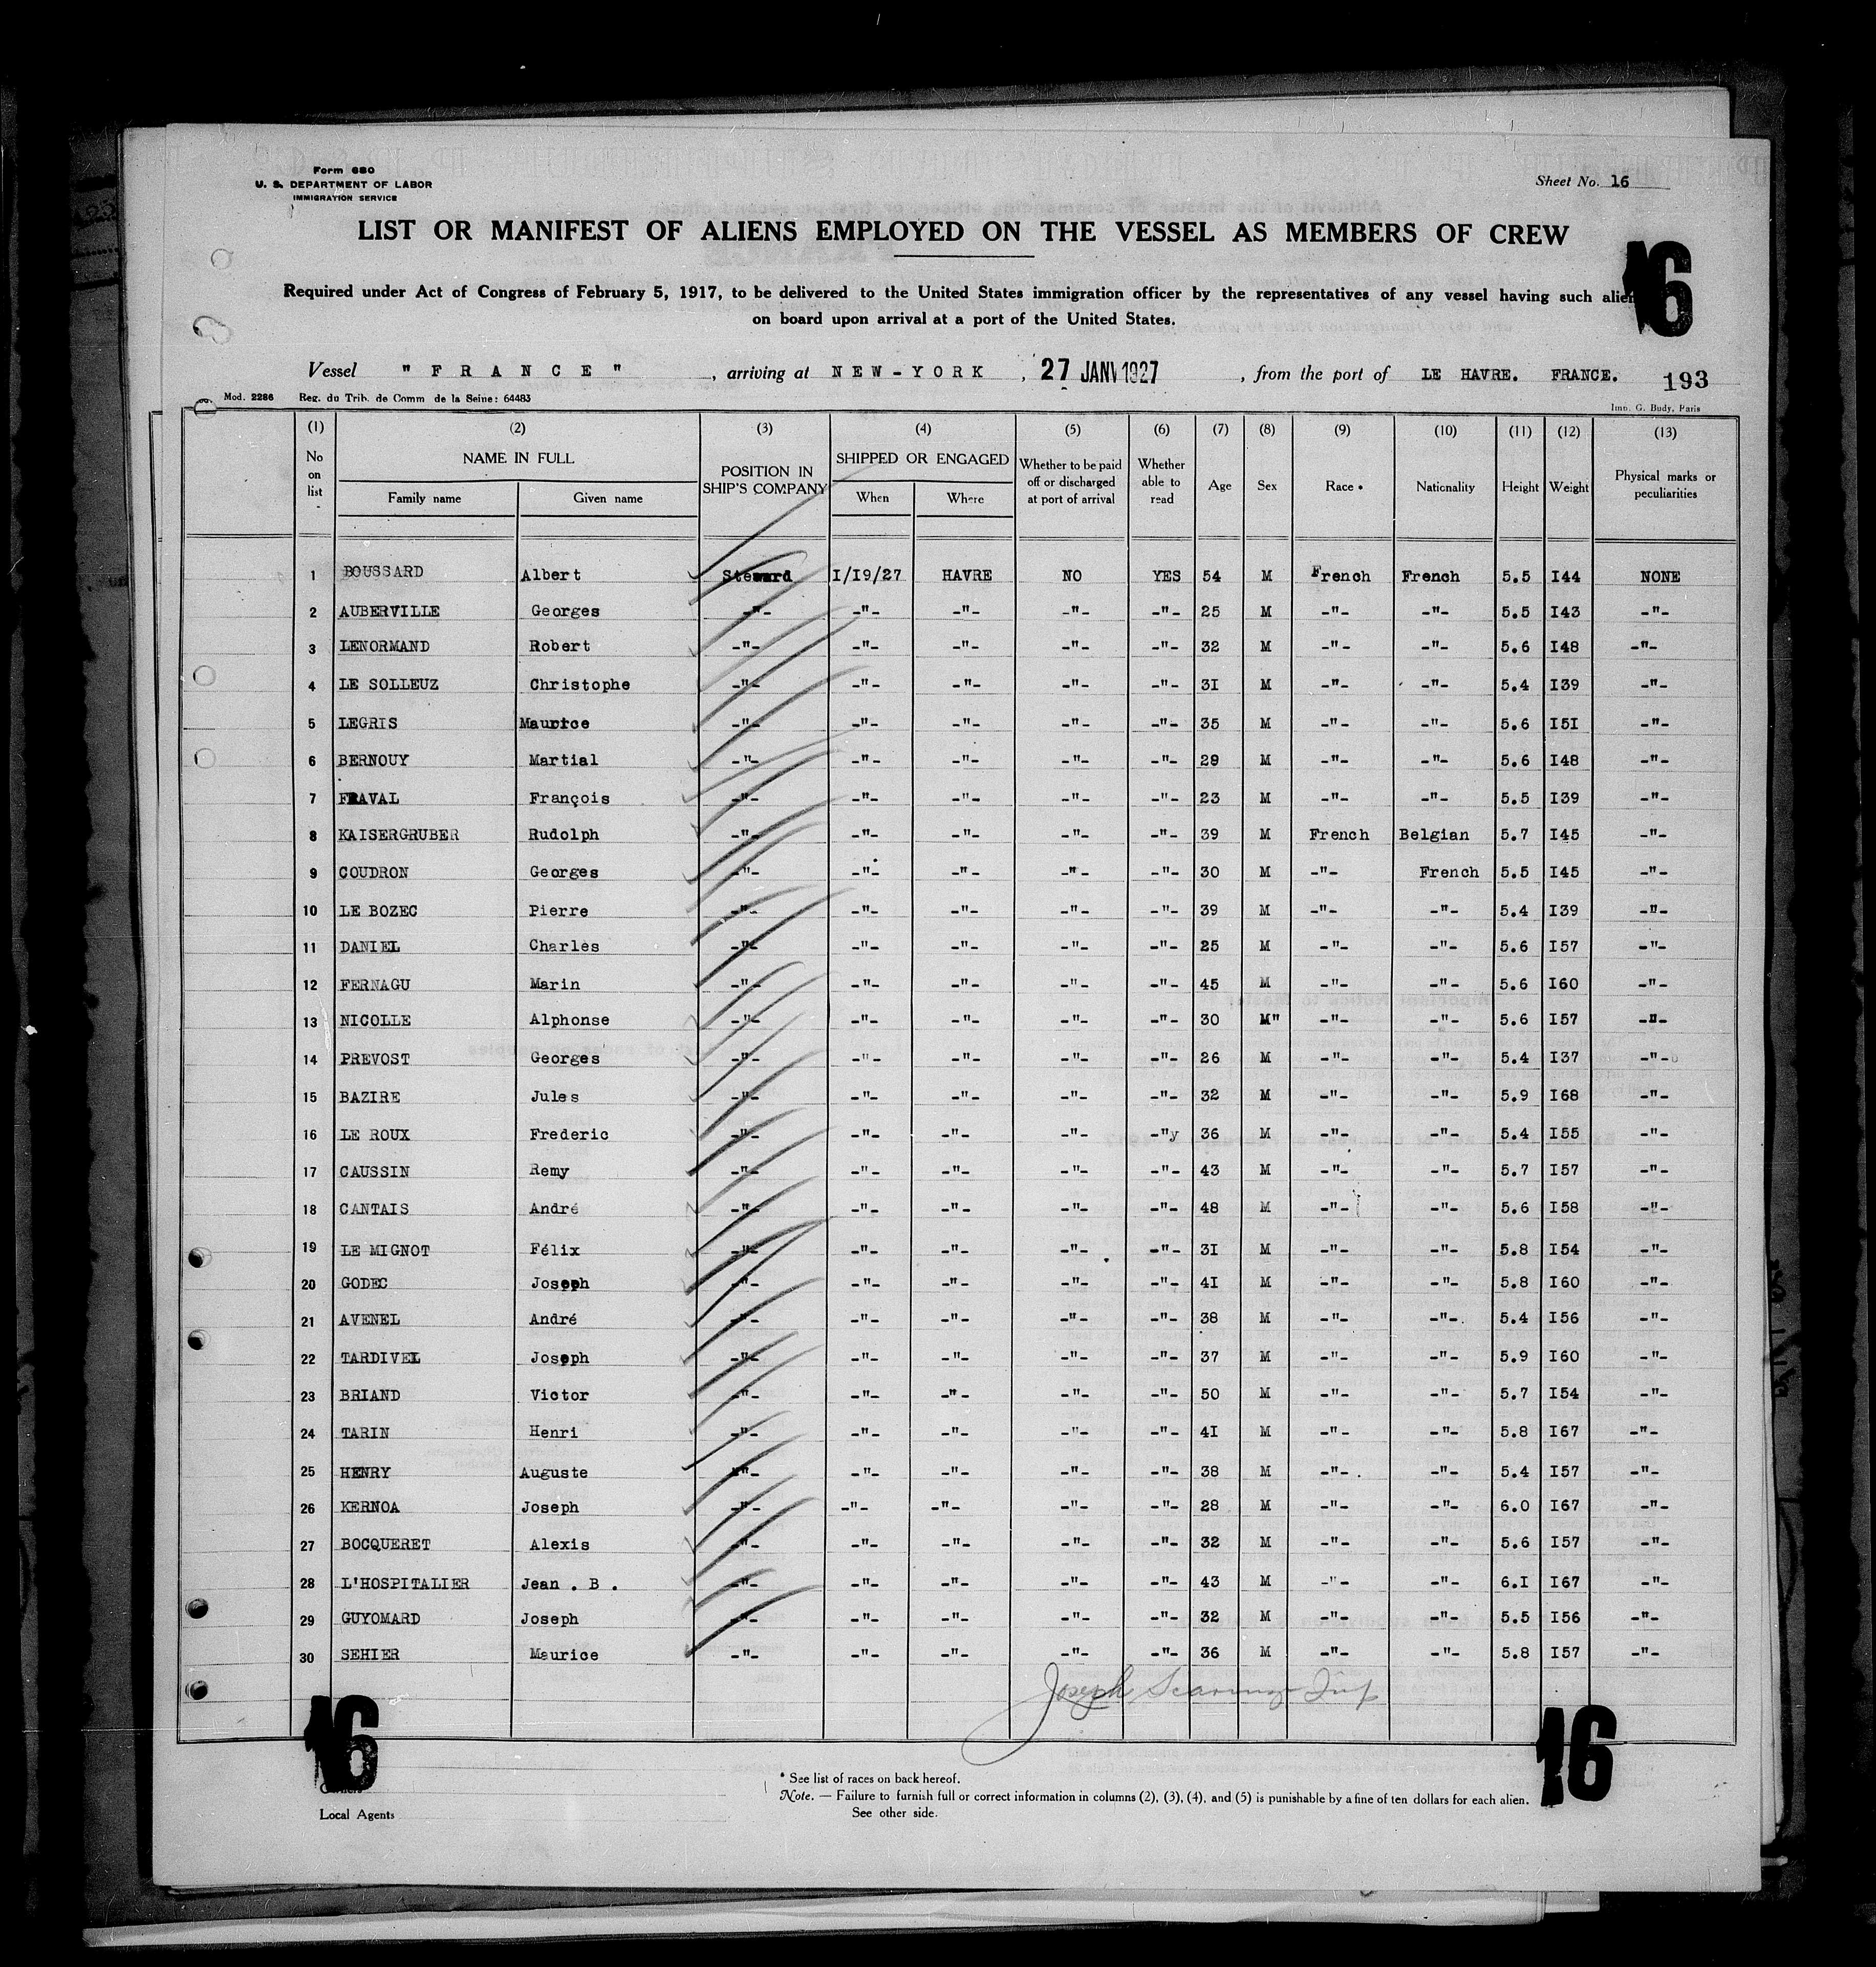 Form 680
U. S. DEPARTMENT OF LABOR
IMMIGRATION SERVICE
Sheet No. 16
LIST OR MANIFEST OF ALIENS EMPLOYED ON THE VESSEL AS MEMBERS OF CREW
16
Required under Act of Congress of February 5, 1917, to be delivered to the United States immigration officer by the representatives of any vessel having such alien
on board upon arrival at a port of the United States.
Vessel " F R A N C E " , arriving at N E W - Y O R K , 27 JANV 1927 , from the port of LE HAVRE. FRANCE. 193
Mod. 2286 Reg. du Trib. de Comm de la Seine: 64483 Imp. G. Budy, Paris
(1) (2) (3) (4) (5) (6) (7) (8) (9) (10) (11) (12) (13)
No on list NAME IN FULL Family name Given name POSITION IN SHIP'S COMPANY SHIPPED OR ENGAGED When Where Whether to be paid off or discharged at port of arrival Whether able to read Age Sex Race * Nationality Height Weight Physical marks or peculiarities
1 BOUSSARD Albert Steward I/I9/27 HAVRE NO YES 54 M French French 5.5 I44 NONE
2 AUBERVILLE Georges -"- -"- -"- -"- -"- 25 M -"- -"- 5.5 I43 -"-
3 LENORMAND Robert -"- -"- -"- -"- -"- 32 M -"- -"- 5.6 I48 -"-
4 LE SOLLEUZ Christophe -"- -"- -"- -"- -"- 3I M -"- -"- 5.4 I39 -"-
5 LEGRIS Maurice -"- -"- -"- -"- -"- 35 M -"- -"- 5.6 I5I -"-
6 BERNOUY Martial -"- -"- -"- -"- -"- 29 M -"- -"- 5.6 I48 -"-
7 FRAVAL François -"- -"- -"- -"- -"- 23 M -"- -"- 5.5 I39 -"-
8 KAISERGRUBER Rudolph -"- -"- -"- -"- -"- 39 M French Belgian 5.7 I45 -"-
9 COUDRON Georges -"- -"- -"- -"- -"- 30 M -"- French 5.5 I45 -"-
10 LE BOZEC Pierre -"- -"- -"- -"- -"- 39 M -"- -"- 5.4 I39 -"-
11 DANIEL Charles -"- -"- -"- -"- -"- 25 M -"- -"- 5.6 I57 -"-
12 FERNAGU Marin -"- -"- -"- -"- -"- 45 M -"- -"- 5.6 I60 -"-
13 NICOLLE Alphonse -"- -"- -"- -"- -"- 30 M" -"- -"- 5.6 I57 -"-
14 PREVOST Georges -"- -"- -"- -"- -"- 26 M -"- -"- 5.4 I37 -"-
15 BAZIRE Jules -"- -"- -"- -"- -"- 32 M -"- -"- 5.9 I68 -"-
16 LE ROUX Frederic -"- -"- -"- -"- -"y 36 M -"- -"- 5.4 I55 -"-
17 CAUSSIN Remy -"- -"- -"- -"- -"- 43 M -"- -"- 5.7 I57 -"-
18 CANTAIS André -"- -"- -"- -"- -"- 48 M -"- -"- 5.6 I58 -"-
19 LE MIGNOT Félix -"- -"- -"- -"- -"- 3I M -"- -"- 5.8 I54 -"-
20 GODEC Joseph -"- -"- -"- -"- -"- 4I M -"- -"- 5.8 I60 -"-
21 AVENEL André -"- -"- -"- -"- -"- 38 M -"- -"- 5.4 I56 -"-
22 TARDIVEL Joseph -"- -"- -"- -"- -"- 37 M -"- -"- 5.9 I60 -"-
23 BRIAND Victor -"- -"- -"- -"- -"- 50 M -"- -"- 5.7 I54 -"-
24 TARIN Henri -"- -"- -"- -"- -"- 4I M -"- -"- 5.8 I67 -"-
25 HENRY Auguste -"- -"- -"- -"- -"- 38 M -"- -"- 5.4 I57 -"-
26 KERNOA Joseph -"- -"- -"- -"- -"- 28 M -"- -"- 6.0 I67 -"-
27 BOCQUERET Alexis -"- -"- -"- -"- -"- 32 M -"- -"- 5.6 I57 -"-
28 L'HOSPITALIER Jean . B . -"- -"- -"- -"- -"- 43 M -"- -"- 6.I I67 -"-
29 GUYOMARD Joseph -"- -"- -"- -"- -"- 32 M -"- -"- 5.5 I56 -"-
30 SEHIER Maurice -"- -"- -"- -"- -"- 36 M -"- -"- 5.8 I57 -"-
Joseph
16 16
* See list of races on back hereof.
Note. — Failure to furnish full or correct information in columns (2), (3), (4), and (5) is punishable by a fine of ten dollars for each alien.
Local Agents See other side.